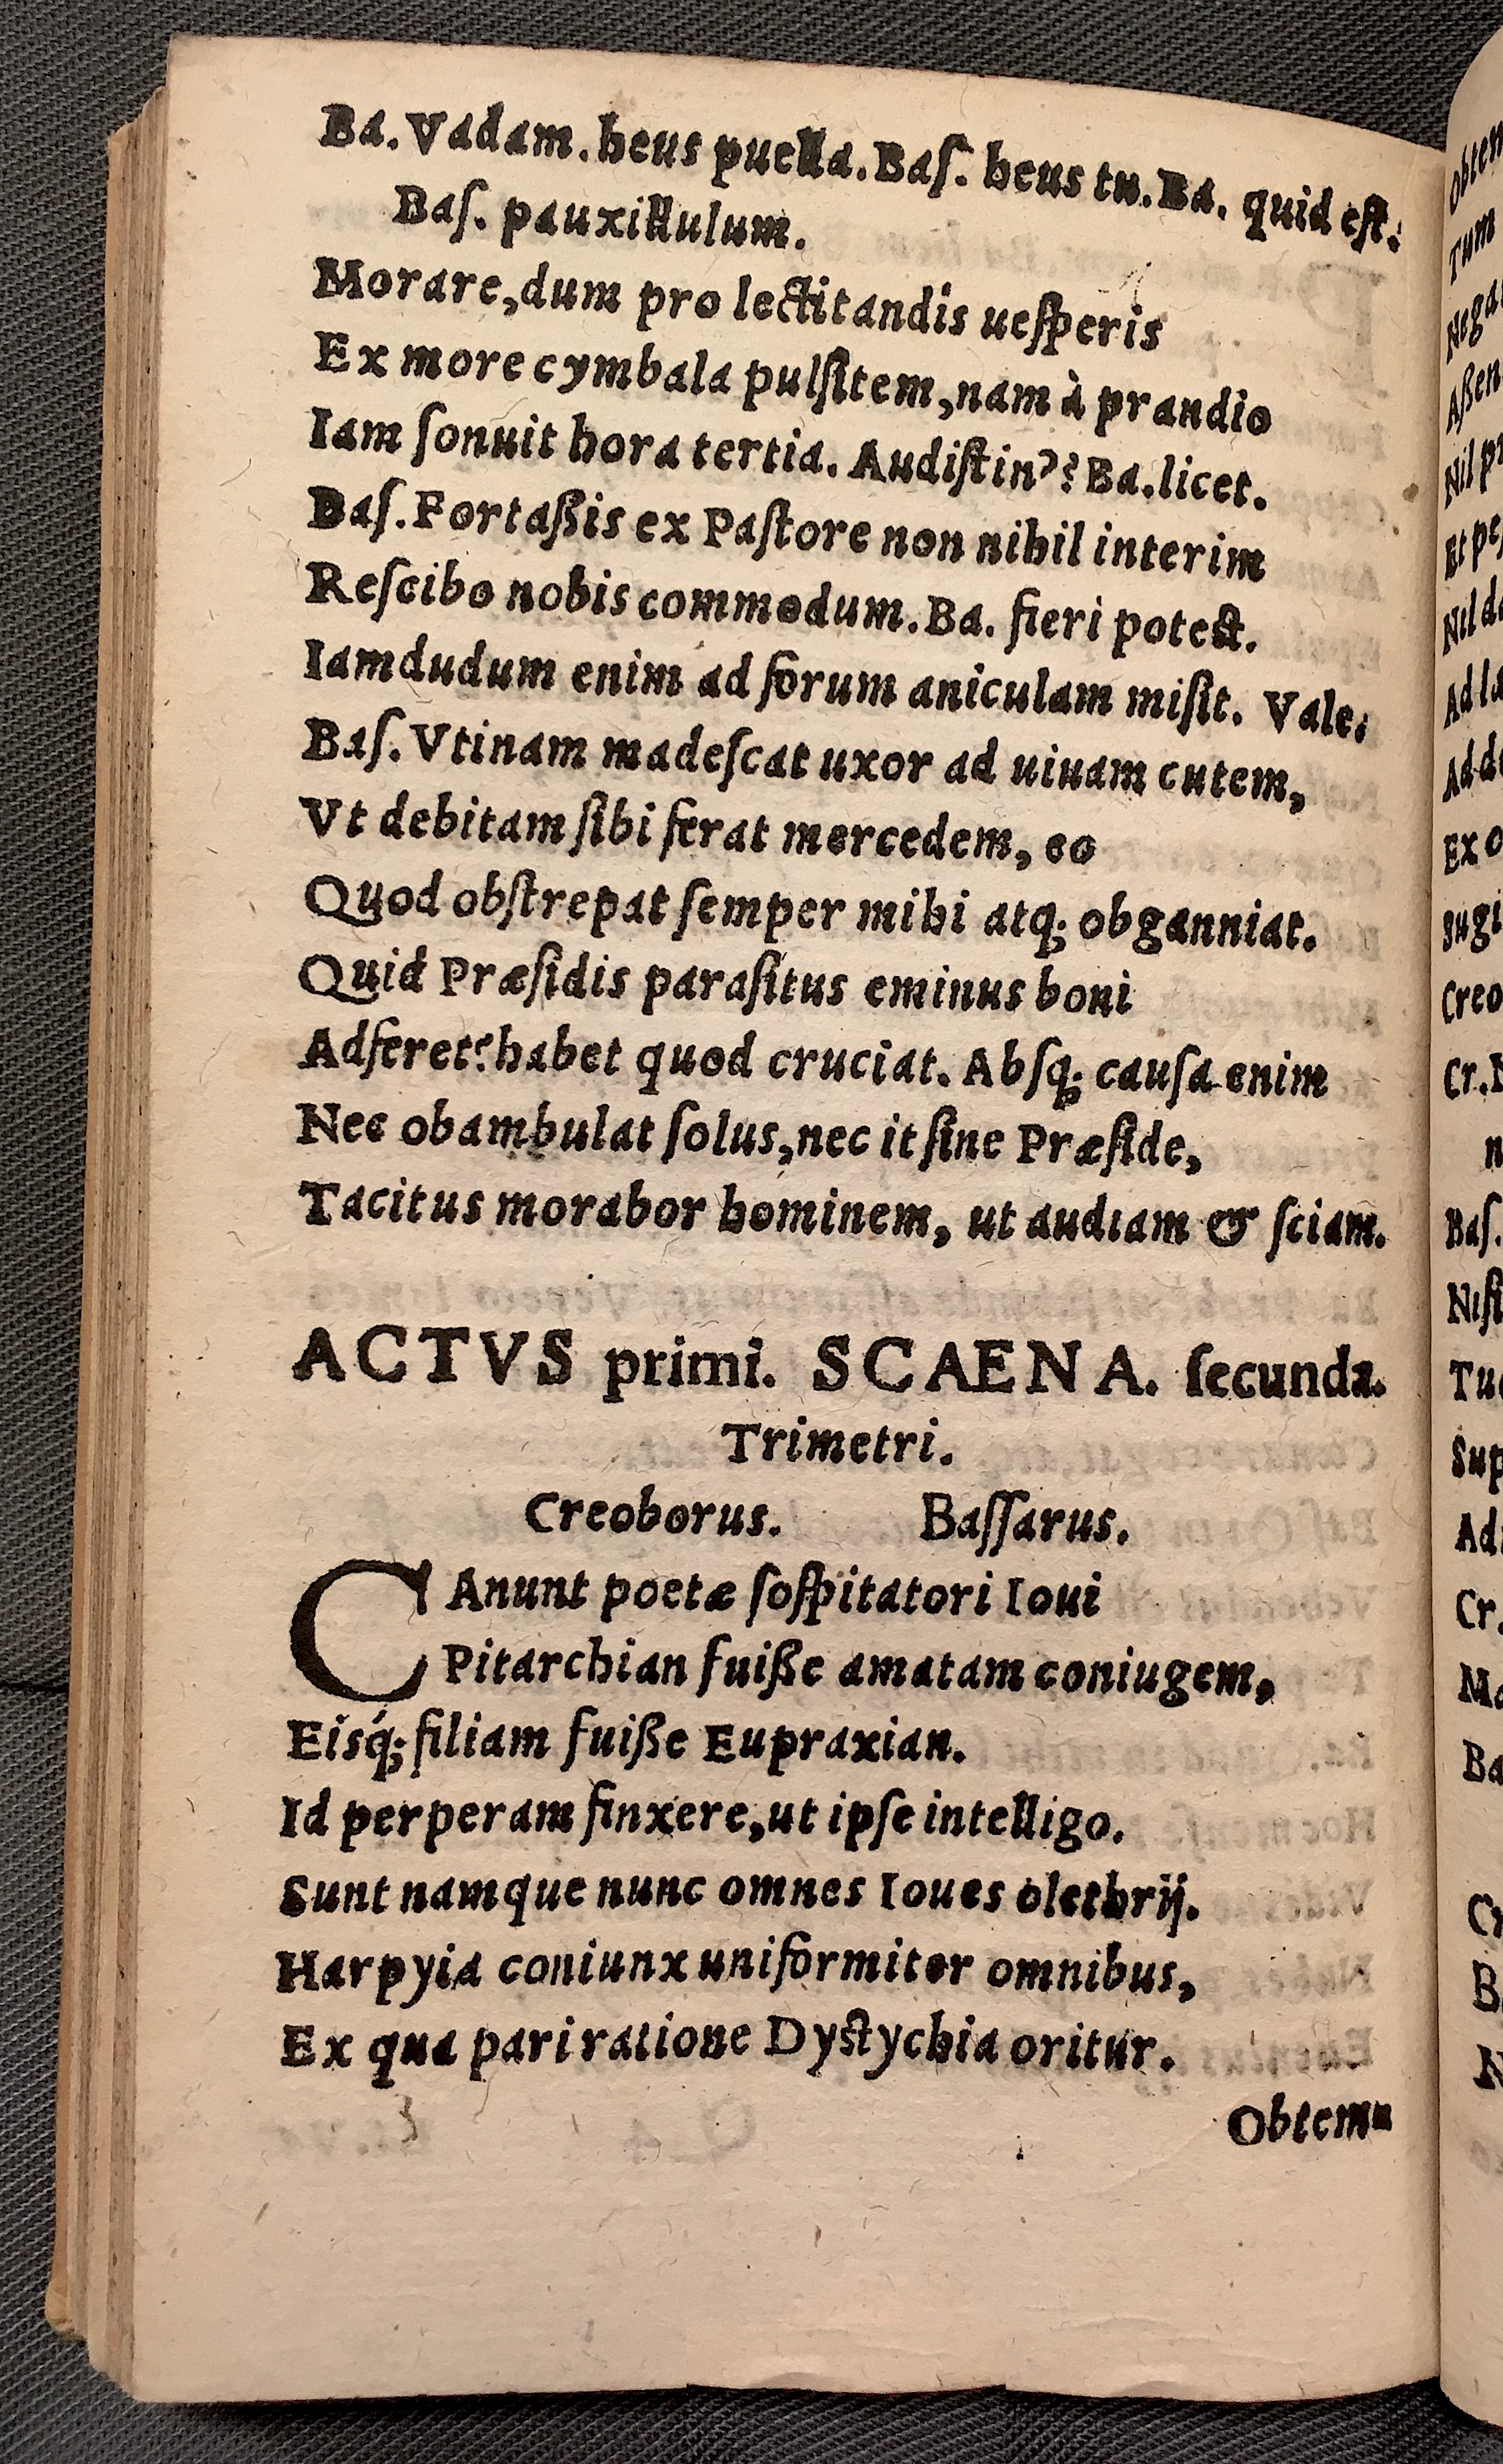 Ba. Vadam. heus puella. Baſ. heus tu. Ba. quid eſt.
Baſ. pauxillulum.
Morare, dum pro lectitandis ueſperis
Ex more cymbala pulſitem, nam à prandio
Iam ſonuit hora tertia. Audiſtin'? Ba. licet.
Baſ. Fortaßis ex Paſtore non nihil interim
Reſcibo nobis commodum. Ba. fieri poteſt.
Iamdudum enim ad forum aniculam miſit. Vale.
Baſ. Vtinam madeſcat uxor ad uiuam cutem,
Vt debitam ſibi ferat mercedem, eo
Quod obſtrepat ſemper mihi atq; obganniat.
Quid Præſidis paraſitus eminus boni
Adferet? habet quod cruciat. Abſq; cauſa enim
Nec obambulat ſolus, nec it ſine Præſide,
Tacitus morabor hominem, ut audiam & ſciam.
ACTVS primi. SCAENA. ſecunda.
Trimetri.
Creoborus. Baſſarus.
CAnunt poetæ ſoſpitatori Ioui
Pitarchian fuiße amatam coniugem,
Eisq́; filiam fuiße Eupraxian.
Id perperam finxere, ut ipſe intelligo.
Sunt namque nunc omnes Ioues olethrij.
Harpyia coniunx uniformiter omnibus,
Ex qua pari ratione Dyſtychia oritur.
Obtem⸗
Obtem
Tum
Nega
Aßen
Nil pr
Et peſ
Nil de
Ad la
Ad de
Ex o
Iugi
Creo
Cr. N
n
Baſ.
Niſi
Tuo
Sup
Ad
Cr.
Ma
Ba
Cr
B
N